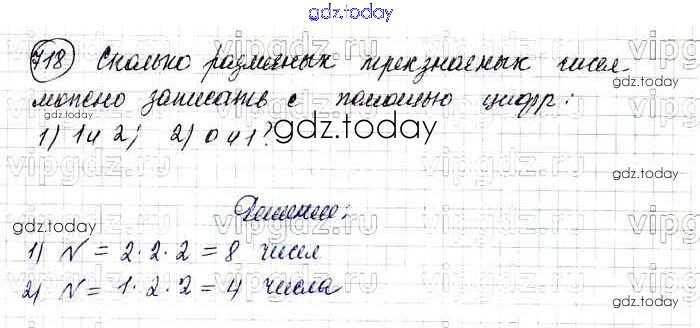 gdz.today
718 Сколько различных трехзначных чисел
можно записать с помощью цифр:
1) 1 и 2; 2) 0 и 1?
gdz.today
gdz.today
gdz.today
Решение:
gdz.today
gdz.today
1) N = 2·2·2 = 8 чисел
2) N = 1·2·2 = 4 числа
gdz.today